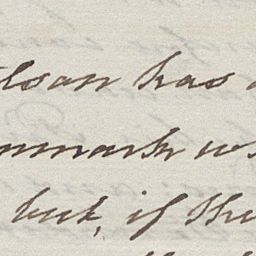 lson has
nmark w
but, if the